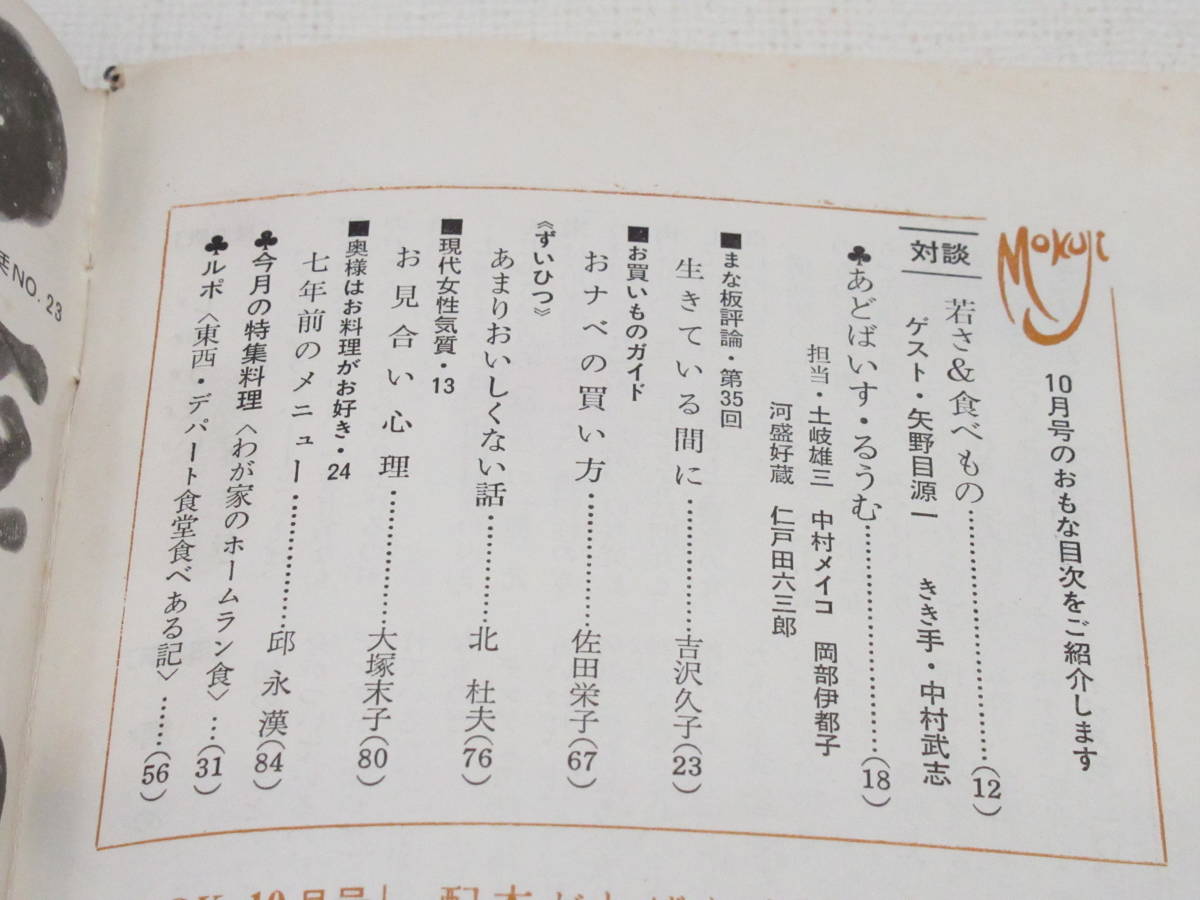 Mokuji
10月号のおもな目次をご紹介します
対談
若さ&食べもの…………………(12)
ゲスト・矢野目源一　きき手・中村武志
♣あどばいす・るうむ…………………(18)
担当・土岐雄三　中村メイコ　岡部伊都子
河盛好蔵　仁戸田六三郎
■まな板評論・第35回
生きている間に…………吉沢久子(23)
■お買いものガイド
おナベの買い方…………佐田栄子(67)
《ずいひつ》
あまりおいしくない話…………北　杜夫(76)
■現代女性気質・13
お見合い心理…………大塚末子(80)
■奥様はお料理がお好き・24
七年前のメニュー…………邱永漢(84)
♣今月の特集料理〈わが家のホームラン食〉…(31)
♣ルポ〈東西・デパート食堂食べある記〉……(56)
NO. 23
10月号